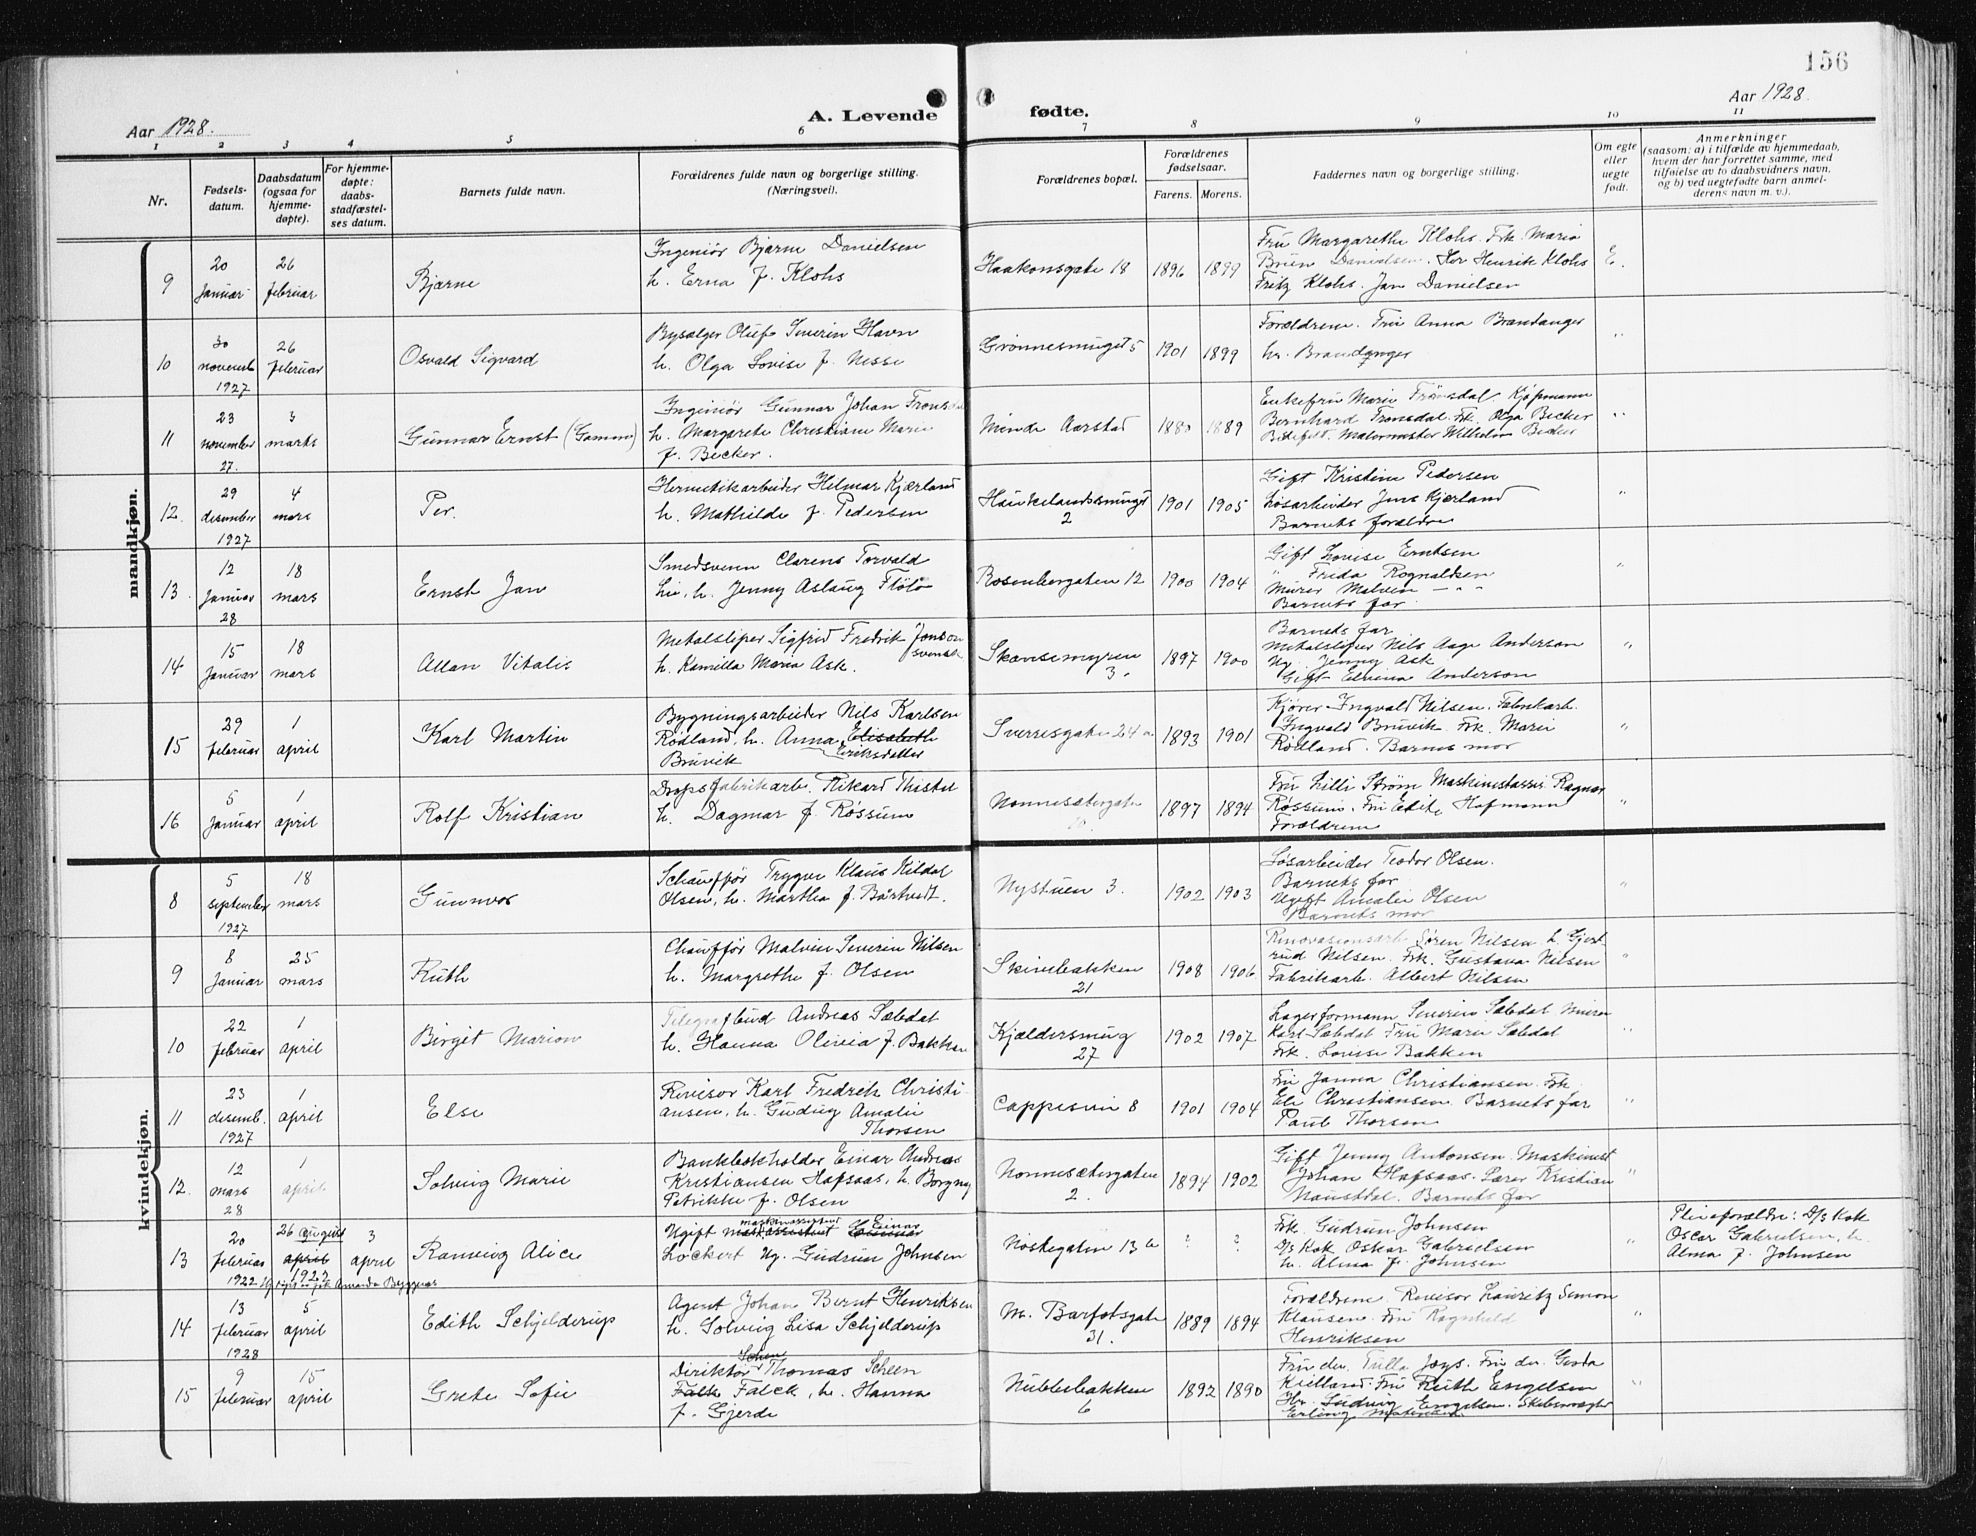 156
Aar 1928.
A. Levende
fødte.
Aar 1928.
1 2 3 4 5 6 7 8 9 10 11
Nr.
Fødsels-
datum.
Daabsdatum
(ogsaa for
hjemme-
døpte).
For hjemme-
døpte:
daabs-
stadfæstel-
ses datum.
Barnets fulde navn.
Forældrenes fulde navn og borgerlige stilling.
(Næringsvei).
Forældrenes bopæl.
Forældrenes
fødselsaar.
Farens. Morens.
Faddernes navn og borgerlige stilling.
Om egte
eller
uegte
født.
Anmerkninger
(saasom: a) i tilfælde av hjemmedaab,
hvem der har forrettet samme, med
tilføielse av to daabsvidners navn,
og b) ved uegtefødte barn anmel-
derens navn m. v.).
mandkjøn.
9
20
Januar
26
februar
Bjarne
Ingeniør Bjarne Danielsen
h. Erna f. Klohs
Haakonsgate 18
1896 1899
Fru Margarethe Klohs. Frk. Maria
Brun Danielsen. Her Henrik Klohs
Fritz Klohs. Jan Danielsen
E.
10
30
novemb
1927
26
februar
Osvald Sigvard
Bysælger Oluf Severin Havn
h. Olga Lovise f. Nesse
Grønnesmuget 5
1901 1899
Forældrene. Fru Anna Brandanger
hr. Brandanger
"
11
23
november
27.
3
marts
Gunnar Ernst (Gamme)
Ingeniør Gunnar Johan Tronsdal
h. Margarete Christiane Marie
f. Becker.
Minde Aarstad
1880 1889
Enkefru Marie Tronsdal, Kjøpmann
Bernhard Tronsdal. Frk. Olga Becker
Malermester Wilhelm Becker
"
12.
29
desember
1927
4
mars
Per.
Hermetikarbeider Hilmar Kjærland
h. Mathilde f. Pedersen
Haukelandssmuget
2
1901 1905
Gift Kristine Pedersen
Løsarbeider Jens Kjerland
Barnets forældre
"
13.
12
Januar
28
18
mars
Ernst Jan
Smedsvenn Clarens Torvald
Lie, h. Jenny Aslaug Fløto
Rosenbergaten 12
1900 1904
Gift Lovise Erntsen
" Frida Rognaldsen
Murer Malvin — " "
Barnets far.
"
14
15
Januar
18
mars
Allan Vitalis
Metalsliper Sigfrid Fredrik Jonson
svensk
h. Kamilla Maria Ask.
Skansemyren
3.
1897 1900
Barnets far
Metalsliper Nils Aage Anderson
Ug. Jenny Ask
Gift Elvina Anderson
"
15
29
februar
1
april
Karl Martin
Bygningsarbeider Nils Karlsen
Rødland, h. Anna Elisabeth
Eriksdatter
Bruvik
Sverresgaten 24 a
1893 1901
Kjører Ingvald Nilsen. Fabrikarb.
Ingvald Bruvik. Frk. Marie
Rødland. Barnets mor
"
16
5
Januar
1
april
Rolf Kristian
Dropsfabrikarb. Rikard Thistel
h. Dagmar f. Røssum
Nonnesætergaten
1897 1894
Fru Lilli Strøm Maskinistassis Ragnar
Røssum. Fru Edit Hofmann
Forældrene
"
kvindekjøn.
8
5
september
1927
18
mars
Gunnvor
Schauffør Trygve Klaus Kildal
Olsen, h. Martha f. Bårtvedt.
Nystuen 3.
1902 1903
Løsarbeider Teodor Olsen.
Barnets far
Ugift Amalie Olsen
Barnets mor
"
9
8
Januar
25
mars
Ruth
Chauffør Malvin Severin Nilsen
h. Margrethe f. Olsen
Skivebakken
21
1908 1906
Renovasionsarb. Søren Nilsen h. Gjert
rud Nilsen. Frk. Gustava Nilsen
Fabrikarb. Albert Nilsen
"
10
22
februar
1
april
Birgit Marion
Telegrafbud Andreas Sæbdal
h. Hanna Olivia f. Bakken
Kjældersmug
27
1902 1907
Lagerformann Severin Sæbdal Murer
Karl Sæbdal Fru Marie Sæbdal
Frk. Lovise Bakken
"
11
23
desemb.
1927
1
april
Else
Revisor Karl Fredrik Christi-
ansen, h. Gudny Amalie
Thorsen
Cappesvei 8
1901 1904
Fru Janna Christiansen. Frk
Eli Christiansen. Barnets far
Paul Thorsen
"
12.
12
mars
28
1
april
Solveig Marie
Bankbokholder Einar Andreas
Kristiansen Hopsaas, h. Borgny
Petrikke f. Olsen
Nonnesætergaten
2.
1894 1902
Gift Jenny Antonsen. Maskinist
Johan Hopsaas. Lærer Kristian
Naustdal. Barnets far
"
13
20
februar
1922
26 august
april
1922
3
april
Ranveig Alice
Ugift maskinassistent Einar
Lockert Ug. Gudrun Johnsen
Nøstegaten 13 b
? ?
Frk. Gudrun Johnsen
D/s Kok Oskar Gabrielsen
h. Alma f. Johnsen
"
Pleieforældre: D/s Kok
Oscar Gabrielsen, h.
Alma f. Johnsen
14
13
februar
1928
5
april
Edith Schjelderup
Agent Johan Bernt Henriksen
h. Solveig Lisa Schjelderup
M. Barfotsgate
31.
1889 1894
Forældrene. Revisor Lauritz Simon
Klausen. Fru Ragnhild
Henriksen
"
15
9
februar
15
april
Grete Sofie
Direktør Thomas Scheen
Falck, h. Hanna
f. Gjerde
Nubbebakken
6
1892 1890
Kielland. Fru Ruth Engelsen
Hr. Ludvig Engelsen. Skibsmægler
"